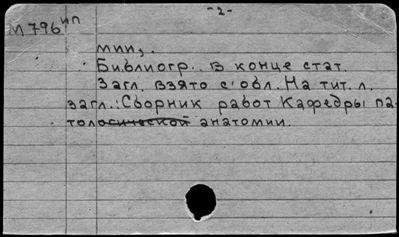 -2-
М796 ип
мии,.
Библиогр. в конце стат.
Загл. взято с обл. На тит. л.
загл.: Сборник работ Кафедры па-
тологической анатомии.